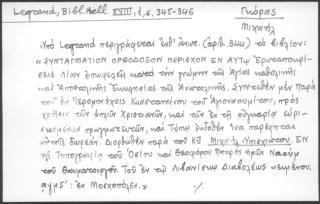 Legrand, Bibl. Hell. XVIII, 1, 6. 345-346
Γκόρας
Μιχαήλ
Ὑπὸ Legrand περιγράφεται ἐνθ' ἀνωτ. (ἀριθ. 344) τὸ βιβλίον:
« ΣΥΝΤΑΓΜΑΤΙΟΝ ΟΡΘΟΔΟΞΟΝ ΠΕΡΙΕΧΟΝ ΕΝ ΑΥΤῼ Ἐρωταποκρί-
σεις λίαν ἐπωφελεῖς κατὰ τὴν γνώμην τῆς Ἁγίας καθολικῆς
καὶ Ἀποστολικῆς Ἐκκλησίας τῆς Ἀνατολικῆς. Συντεθὲν μὲν Παρὰ
τοῦ ἐν Ἱερομονάχοις Κωνσταντίνου τοῦ Ἁγιοναουμίτου, πρὸς
χρῆσιν τῶν ἁπλῶν Χριστιανῶν, καὶ τῶν ἐν τῇ Οὐγγαρίᾳ εὑρι-
σκομένων πραγματευτῶν, καὶ Τύπῳ ἐκδοθὲν Ἵνα παρέχηται
αὐτοῖς δωρεάν. Διορθωθὲν παρὰ τοῦ Κῦ Μιχαὴλ Ὑποχισάτου. ΕΝ
τῇ Τυπογραφίᾳ τοῦ Ὁσίου καὶ Θεοφόρου Πατρὸς ἡμῶν Ναοὺμ
τοῦ Θαυματουργοῦ. Τοῦ ἐν τῷ Λιβανίσκῳ Διαβόλεως κειμένου.
αψμϛ´: ἐν Μοσχοπόλει.»